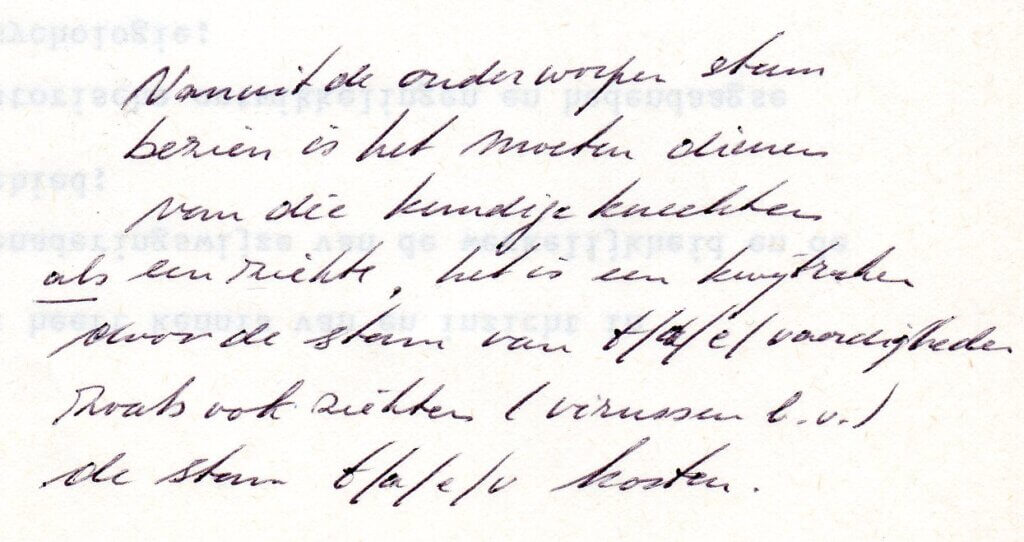 Vanuit de onderworpen stam
bezien is het moeten dienen
van die kundige knechten
als een ziekte, het is een kwijtraken
voor de stam van t/a/e/vaardigheden
zoals ook ziekten (virussen b.v.)
de stam t/a/e/v kosten.